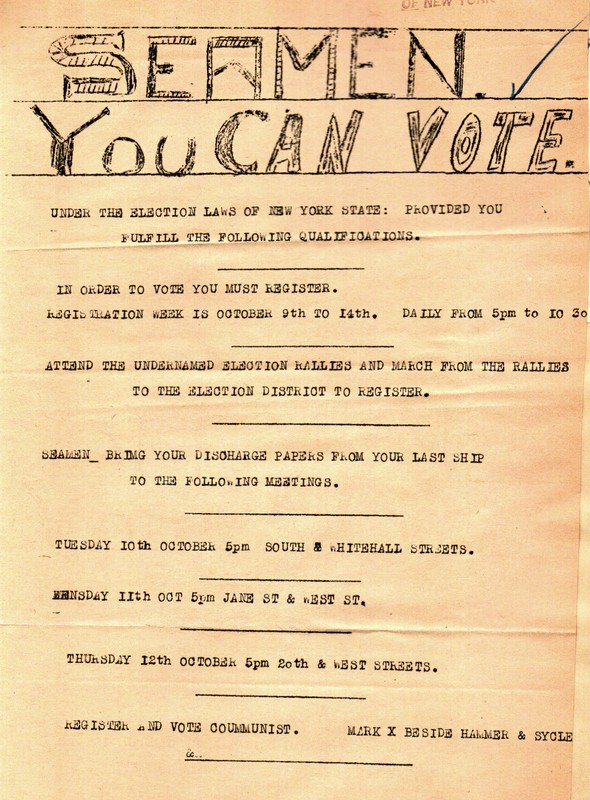 OF NEW YORK
SEAMEN.
YOU CAN VOTE.
UNDER THE ELECTION LAWS OF NEW YORK STATE: PROVIDED YOU
FULFILL THE FOLLOWING QUALIFICATIONS.
IN ORDER TO VOTE YOU MUST REGISTER.
REGISTRATION WEEK IS OCTOBER 9th TO 14th. DAILY FROM 5pm to 10 30
ATTEND THE UNDERNAMED ELECTION RALLIES AND MARCH FROM THE RALLIES
TO THE ELECTION DISTRICT TO REGISTER.
SEAMEN_ BRIMG YOUR DISCHARGE PAPERS FROM YOUR LAST SHIP
TO THE FOLLOWING MEETINGS.
TUESDAY 10th OCTOBER 5pm SOUTH & WHITEHALL STREETS.
WENSDAY 11th OCT 5pm JANE ST & WEST ST.
THURSDAY 12th OCTOBER 5pm 20th & WEST STREETS.
REGISTER AND VOTE COUMMUNIST. MARK X BESIDE HAMMER & SYCLE
&..